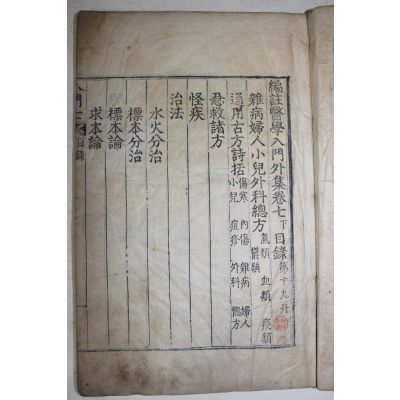 編註醫學入門外集卷七下目錄 第十九冊
雜病婦人小兒外科總方 氣類 血類 痰類 鬱類
通用古方詩括 傷寒 內傷 雜病 婦人 小兒 痘疹 外科 總方
急救諸方
怪疾
治法
水火分治
標本分治
標本論
求本論
入門
目錄